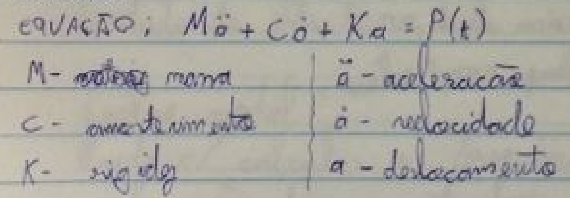 EQUAÇÃO: Mä + Cȧ + Ka = P(t)
M - massa | ä - aceleração
C - amortecimento | ȧ - velocidade
K - rigidez | a - deslocamento